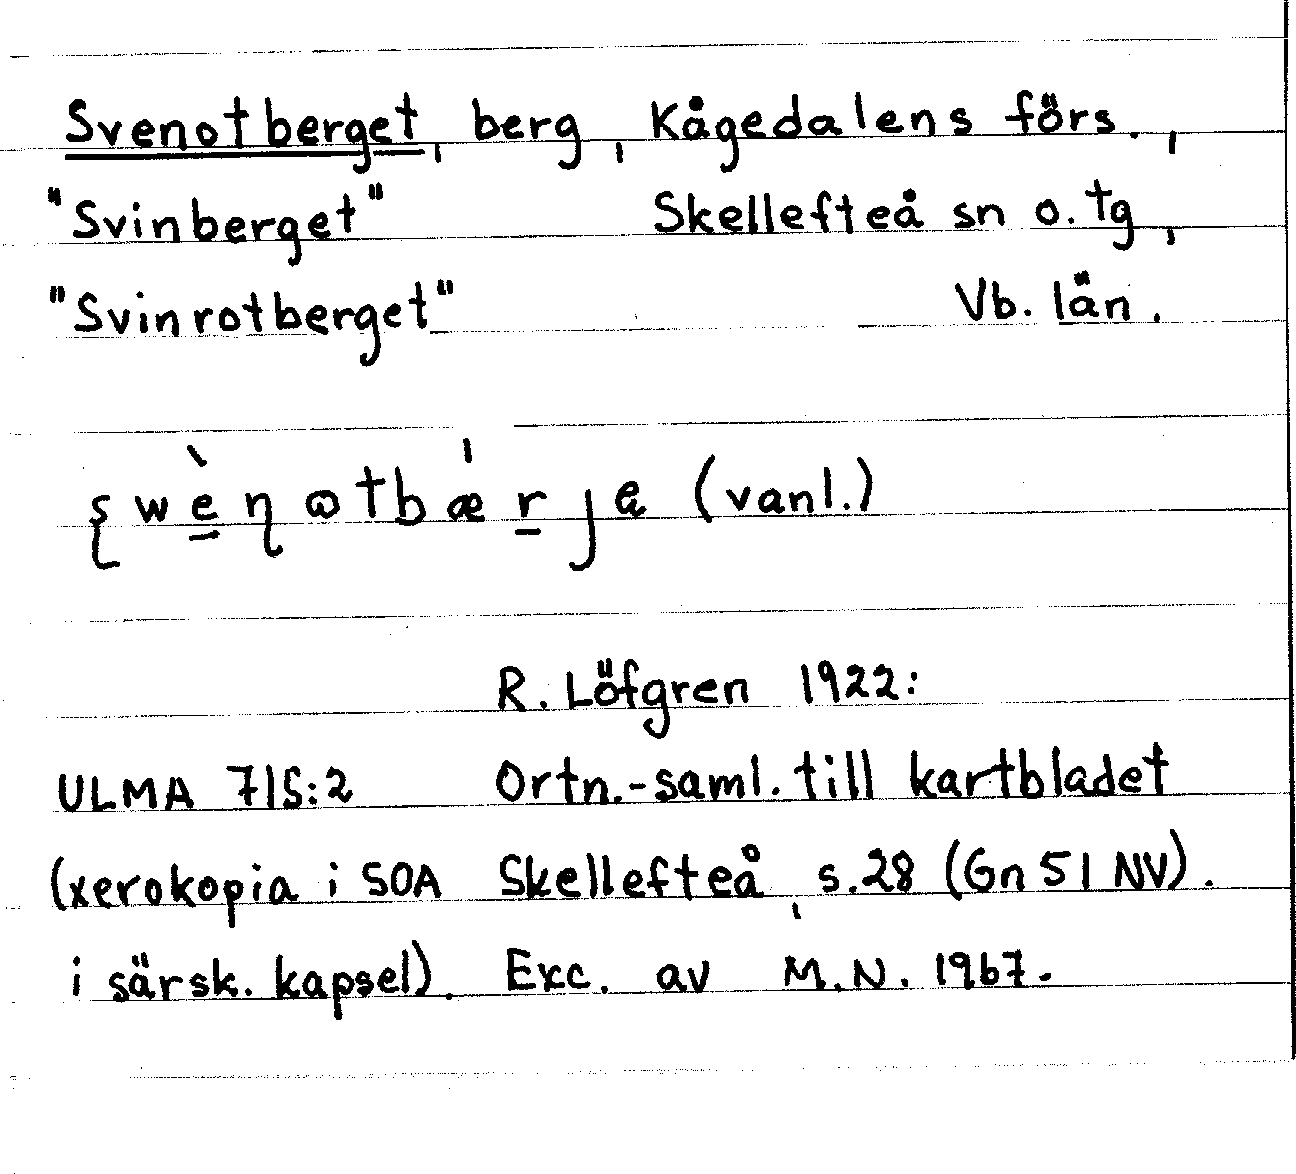 Svenotberget, berg, Kågedalens förs.,
"Svinberget" Skellefteå sn o. tg,
"Svinrotberget" Vb. län.
(vanl.)
R. Löfgren 1922:
ULMA 715:2 Ortn.-saml. till kartbladet
(xerokopia i SOA Skellefteå, s.28 (Gn 51 NV).
i särsk. kapsel). Exc. av M.N. 1967.